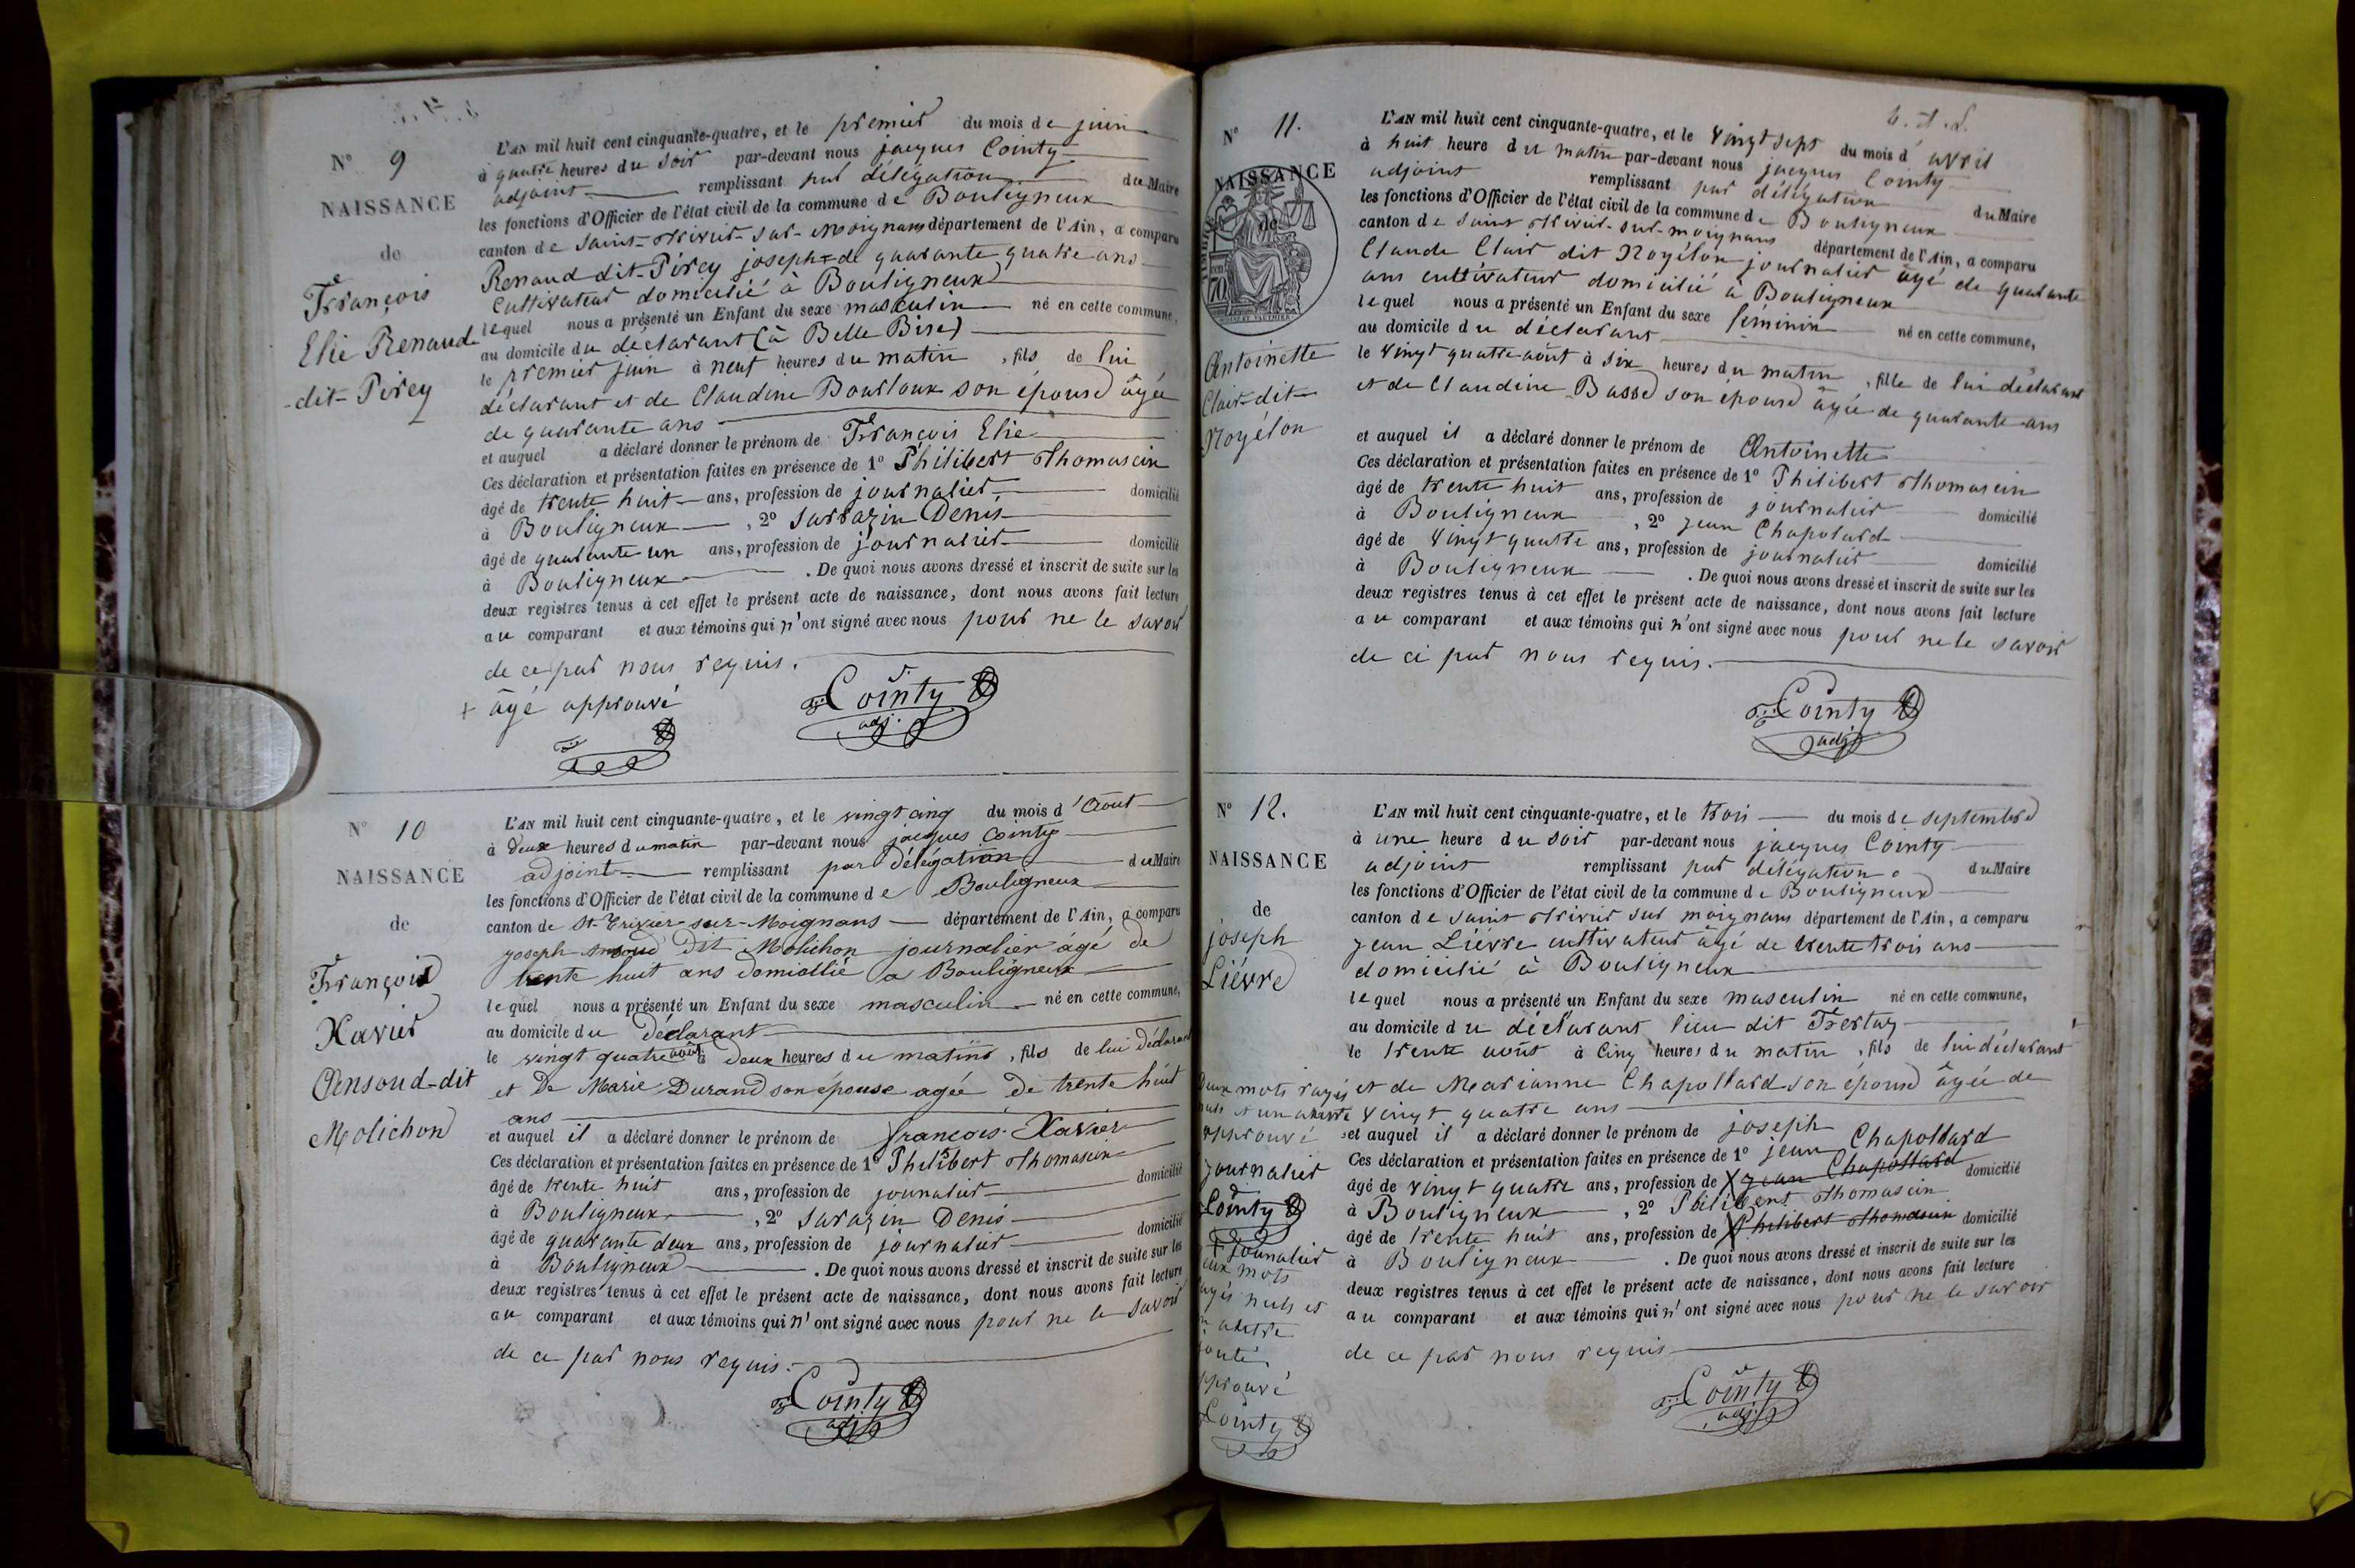 N° 9
NAISSANCE
de
François
Elie Renaud
dit-Pirey
L'AN mil huit cent cinquante-quatre, et le premier du mois de juin
à quatre heures du soir par-devant nous jacques Cointy
adjoint remplissant par délégation du Maire
les fonctions d'Officier de l'état civil de la commune de Bouligneux
canton de Saint-Trivier-sur-Moignans département de l'Ain, a comparu
Renaud dit-Pirey joseph + de quarante quatre ans
Cultivateur domicilié à Bouligneux
lequel nous a présenté un Enfant du sexe masculin né en cette commune,
au domicile du déclarant (à Belle Bise)
le premier juin à neuf heures du matin, fils de lui
déclarant et de Claudine Bourloux son épouse âgée
de quarante ans
et auquel a déclaré donner le prénom de François Elie
Ces déclaration et présentation faites en présence de 1° Philibert Thomasein
âgé de trente huit ans, profession de journalier domicilié
à Bouligneux, 2° Sarrazin Denis
âgé de quarante un ans, profession de journalier domicilié
à Bouligneux. De quoi nous avons dressé et inscrit de suite sur les
deux registres tenus à cet effet le présent acte de naissance, dont nous avons fait lecture
au comparant et aux témoins qui n'ont signé avec nous pour ne le savoir
de ce par nous requis.
+ âgé approuvé
Cointy
adj.
N° 10
NAISSANCE
de
François
Xavier
Ansoud-dit
Molichon
L'AN mil huit cent cinquante-quatre, et le vingt cinq du mois d'Aout
à deux heures du matin par-devant nous jacques Cointy
adjoint remplissant par délégation du Maire
les fonctions d'Officier de l'état civil de la commune de Bouligneux
canton de St-Trivier-sur-Moignans département de l'Ain, a comparu
joseph dit Molichon journalier âgé de
trente huit ans domicillié a Bouligneux
lequel nous a présenté un Enfant du sexe masculin né en cette commune,
au domicile du déclarant
le vingt quatre août à deux heures du matin, fils de lui déclarant
et de Marie Durand son épouse agée de trente huit
ans
et auquel il a déclaré donner le prénom de françois Xavier
Ces déclaration et présentation faites en présence de 1° Philibert Thomasein
âgé de trente huit ans, profession de jounalier domicilié
à Bouligneux, 2° Sarazin Denis
âgé de quarante deux ans, profession de journalier domicilié
à Bouligneux. De quoi nous avons dressé et inscrit de suite sur les
deux registres tenus à cet effet le présent acte de naissance, dont nous avons fait lecture
au comparant et aux témoins qui n'ont signé avec nous pour ne le savoir
de ce par nous requis.
Cointy
adj.
N° 11.
NAISSANCE
de
Antoinette
Clair-dit-
Noyélon
L'AN mil huit cent cinquante-quatre, et le vingt sept du mois d'avril
à huit heure du matin par-devant nous jacques Cointy
adjoint remplissant par délégation du Maire
les fonctions d'Officier de l'état civil de la commune de Bouligneux
canton de Saint Trivier-sur-moignans département de l'Ain, a comparu
Claude Clair dit Noyélon journalier âgé de quarante
ans cultivateur domicilié à Bouligneux
lequel nous a présenté un Enfant du sexe féminin né en cette commune,
au domicile du déclarant
le vingt quatre août à six heures du matin, fille de lui déclarant
et de Claudine Basse son épouse âgée de quarante ans
et auquel il a déclaré donner le prénom de Antoinette
Ces déclaration et présentation faites en présence de 1° Philibert Thomasein
âgé de trente huit ans, profession de journalier domicilié
à Bouligneux, 2° Jean Chapolard
âgé de vingt quatre ans, profession de journalier domicilié
à Bouligneux. De quoi nous avons dressé et inscrit de suite sur les
deux registres tenus à cet effet le présent acte de naissance, dont nous avons fait lecture
au comparant et aux témoins qui n'ont signé avec nous pour ne le savoir
de ci par nous requis.
Cointy
adj.
N° 12.
NAISSANCE
de
joseph
Liévre
L'AN mil huit cent cinquante-quatre, et le trois du mois de septembre
à une heure du soir par-devant nous jacques Cointy
adjoint remplissant par délégation du Maire
les fonctions d'Officier de l'état civil de la commune de Bouligneux
canton de Saint Trivier sur moignans département de l'Ain, a comparu
Jean Liévre cultivateur âgé de trente trois ans
domicilié à Bouligneux
lequel nous a présenté un Enfant du sexe masculin né en cette commune,
au domicile du déclarant lieu dit
le trente août à cinq heures du matin, fils de lui déclarant
et de Marianne Chapollard son épouse âgée de
vingt quatre ans
et auquel il a déclaré donner le prénom de joseph
Ces déclaration et présentation faites en présence de 1° jean Chapollard
âgé de vingt quatre ans, profession de jean Chapollard domicilié
à Bouligneux, 2° Philibert Thomasein
âgé de trente huit ans, profession de Philibert Thomasein domicilié
à Bouligneux. De quoi nous avons dressé et inscrit de suite sur les
deux registres tenus à cet effet le présent acte de naissance, dont nous avons fait lecture
au comparant et aux témoins qui n'ont signé avec nous pour ne le savoir
de ce par nous requis
Cointy
adj.
deux mots rayés
approuvé
journalier
Cointy
+ journalier
mots
nuls et
Cointy